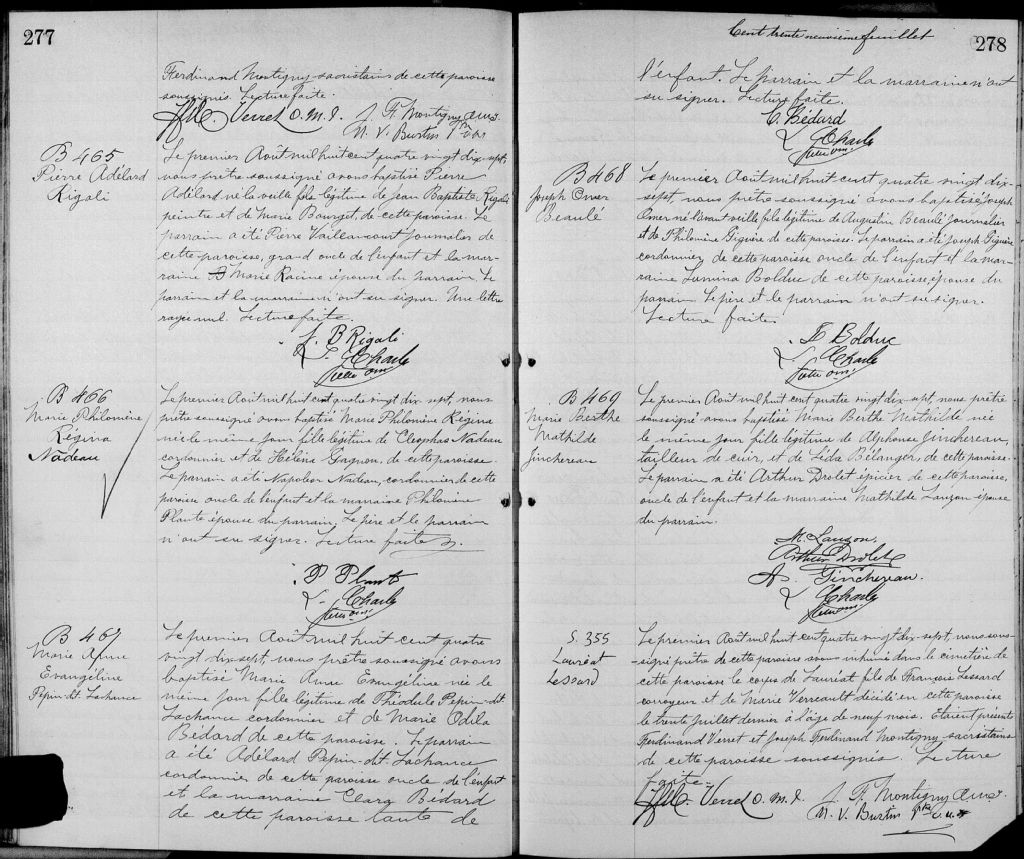 277
Ferdinand Montigny sacristains de cette paroisse
soussignés. Lecture faite.
Verret O.M.I. J. F. Montigny
N. V. Burtin
B 465
Pierre Adélard
Rigali
Le premier Août mil huit cent quatre vingt dix-sept,
nous prêtre soussigné avons baptisé Pierre
Adélard né la veille fils légitime de Jean Baptiste Rigali
peintre et de Marie Bourget, de cette paroisse. Le
parrain a été Pierre Vaillancourt journalier de
cette paroisse, grand oncle de l'enfant et la mar-
raine Marie Racine épouse du parrain. Le
parrain et la marraine n'ont su signer. Une lettre
rayée nul. Lecture faite.
J. B Rigali
L. Charle
ptre omi
B 466
Marie Philomène
Régina
Nadeau
Le premier Août mil huit cent quatre vingt dix-sept, nous
prêtre soussigné avons baptisé Marie Philomène Régina
née le même jour fille légitime de Cléophas Nadeau
cordonnier et de Héléna Gagnon, de cette paroisse.
Le parrain a été Napoléon Nadeau, cordonnier de cette
paroisse oncle de l'enfant et la marraine Philomène
Plante épouse du parrain. Le père et le parrain
n'ont su signer. Lecture faite
P Plante
L. Charle
ptre omi
B 467
Marie Anne
Evangéline
Pépin-dit-Lachance
Le premier Août mil huit cent quatre
vingt dix-sept, nous prêtre soussigné avons
baptisé Marie Anne Evangéline née le
même jour fille légitime de Théodule Pépin-dit-
Lachance cordonnier et de Marie Odile
Bédard de cette paroisse. Le parrain
a été Adélard Pépin-dit-Lachance
cordonnier de cette paroisse oncle de l'enfant
et la marraine Clara Bédard
de cette paroisse tante de
Cent trente neuvième feuillet
278
l'enfant. Le parrain et la marraine n'ont
su signer. Lecture faite.
C. Bédard
L. Charle
ptre omi
B 468
Joseph Omer
Beaulé
Le premier Août mil huit cent quatre vingt dix-
sept, nous prêtre soussigné avons baptisé Joseph
Omer né l'avant veille, fils légitime de Augustin Beaulé journalier
et de Philomène Giguère de cette paroisse. Le parrain a été Joseph Giguère
cordonnier de cette paroisse oncle de l'enfant et la mar-
raine Lumina Bolduc de cette paroisse, épouse du
parrain. Le père et le parrain n'ont su signer.
Lecture faite.
L Bolduc
L. Charle
ptre omi
B 469
Marie Berthe
Mathilde
Jinchereau
Le premier Août mil huit cent quatre vingt dix-sept, nous prêtre
soussigné avons baptisé Marie Berthe Mathilde née
le même jour fille légitime de Alphonse Jinchereau,
tailleur de cuir, et de Léda Bélanger, de cette paroisse.
Le parrain a été Arthur Drolet épicier de cette paroisse,
oncle de l'enfant et la marraine Mathilde Lauzon épouse
du parrain.
M. Lauzon.
Arthur Drolet
A. Jinchereau.
L. Charle
ptre omi
S. 355
Lauréat
Lessard
Le premier Août mil huit cent quatre vingt dix-sept, nous sous-
signé prêtre de cette paroisse avons inhumé dans le cimetière de
cette paroisse le corps de Lauréat fils de François Lessard
corroyeur et de Marie Verreault décédé en cette paroisse
le trente juillet dernier à l'âge de neuf mois. Etaient présents
Ferdinand Verret et Joseph Ferdinand Montigny sacristains
de cette paroisse soussignés. Lecture
faite.
Verret O.M.I. J. F. Montigny
N. V. Burtin